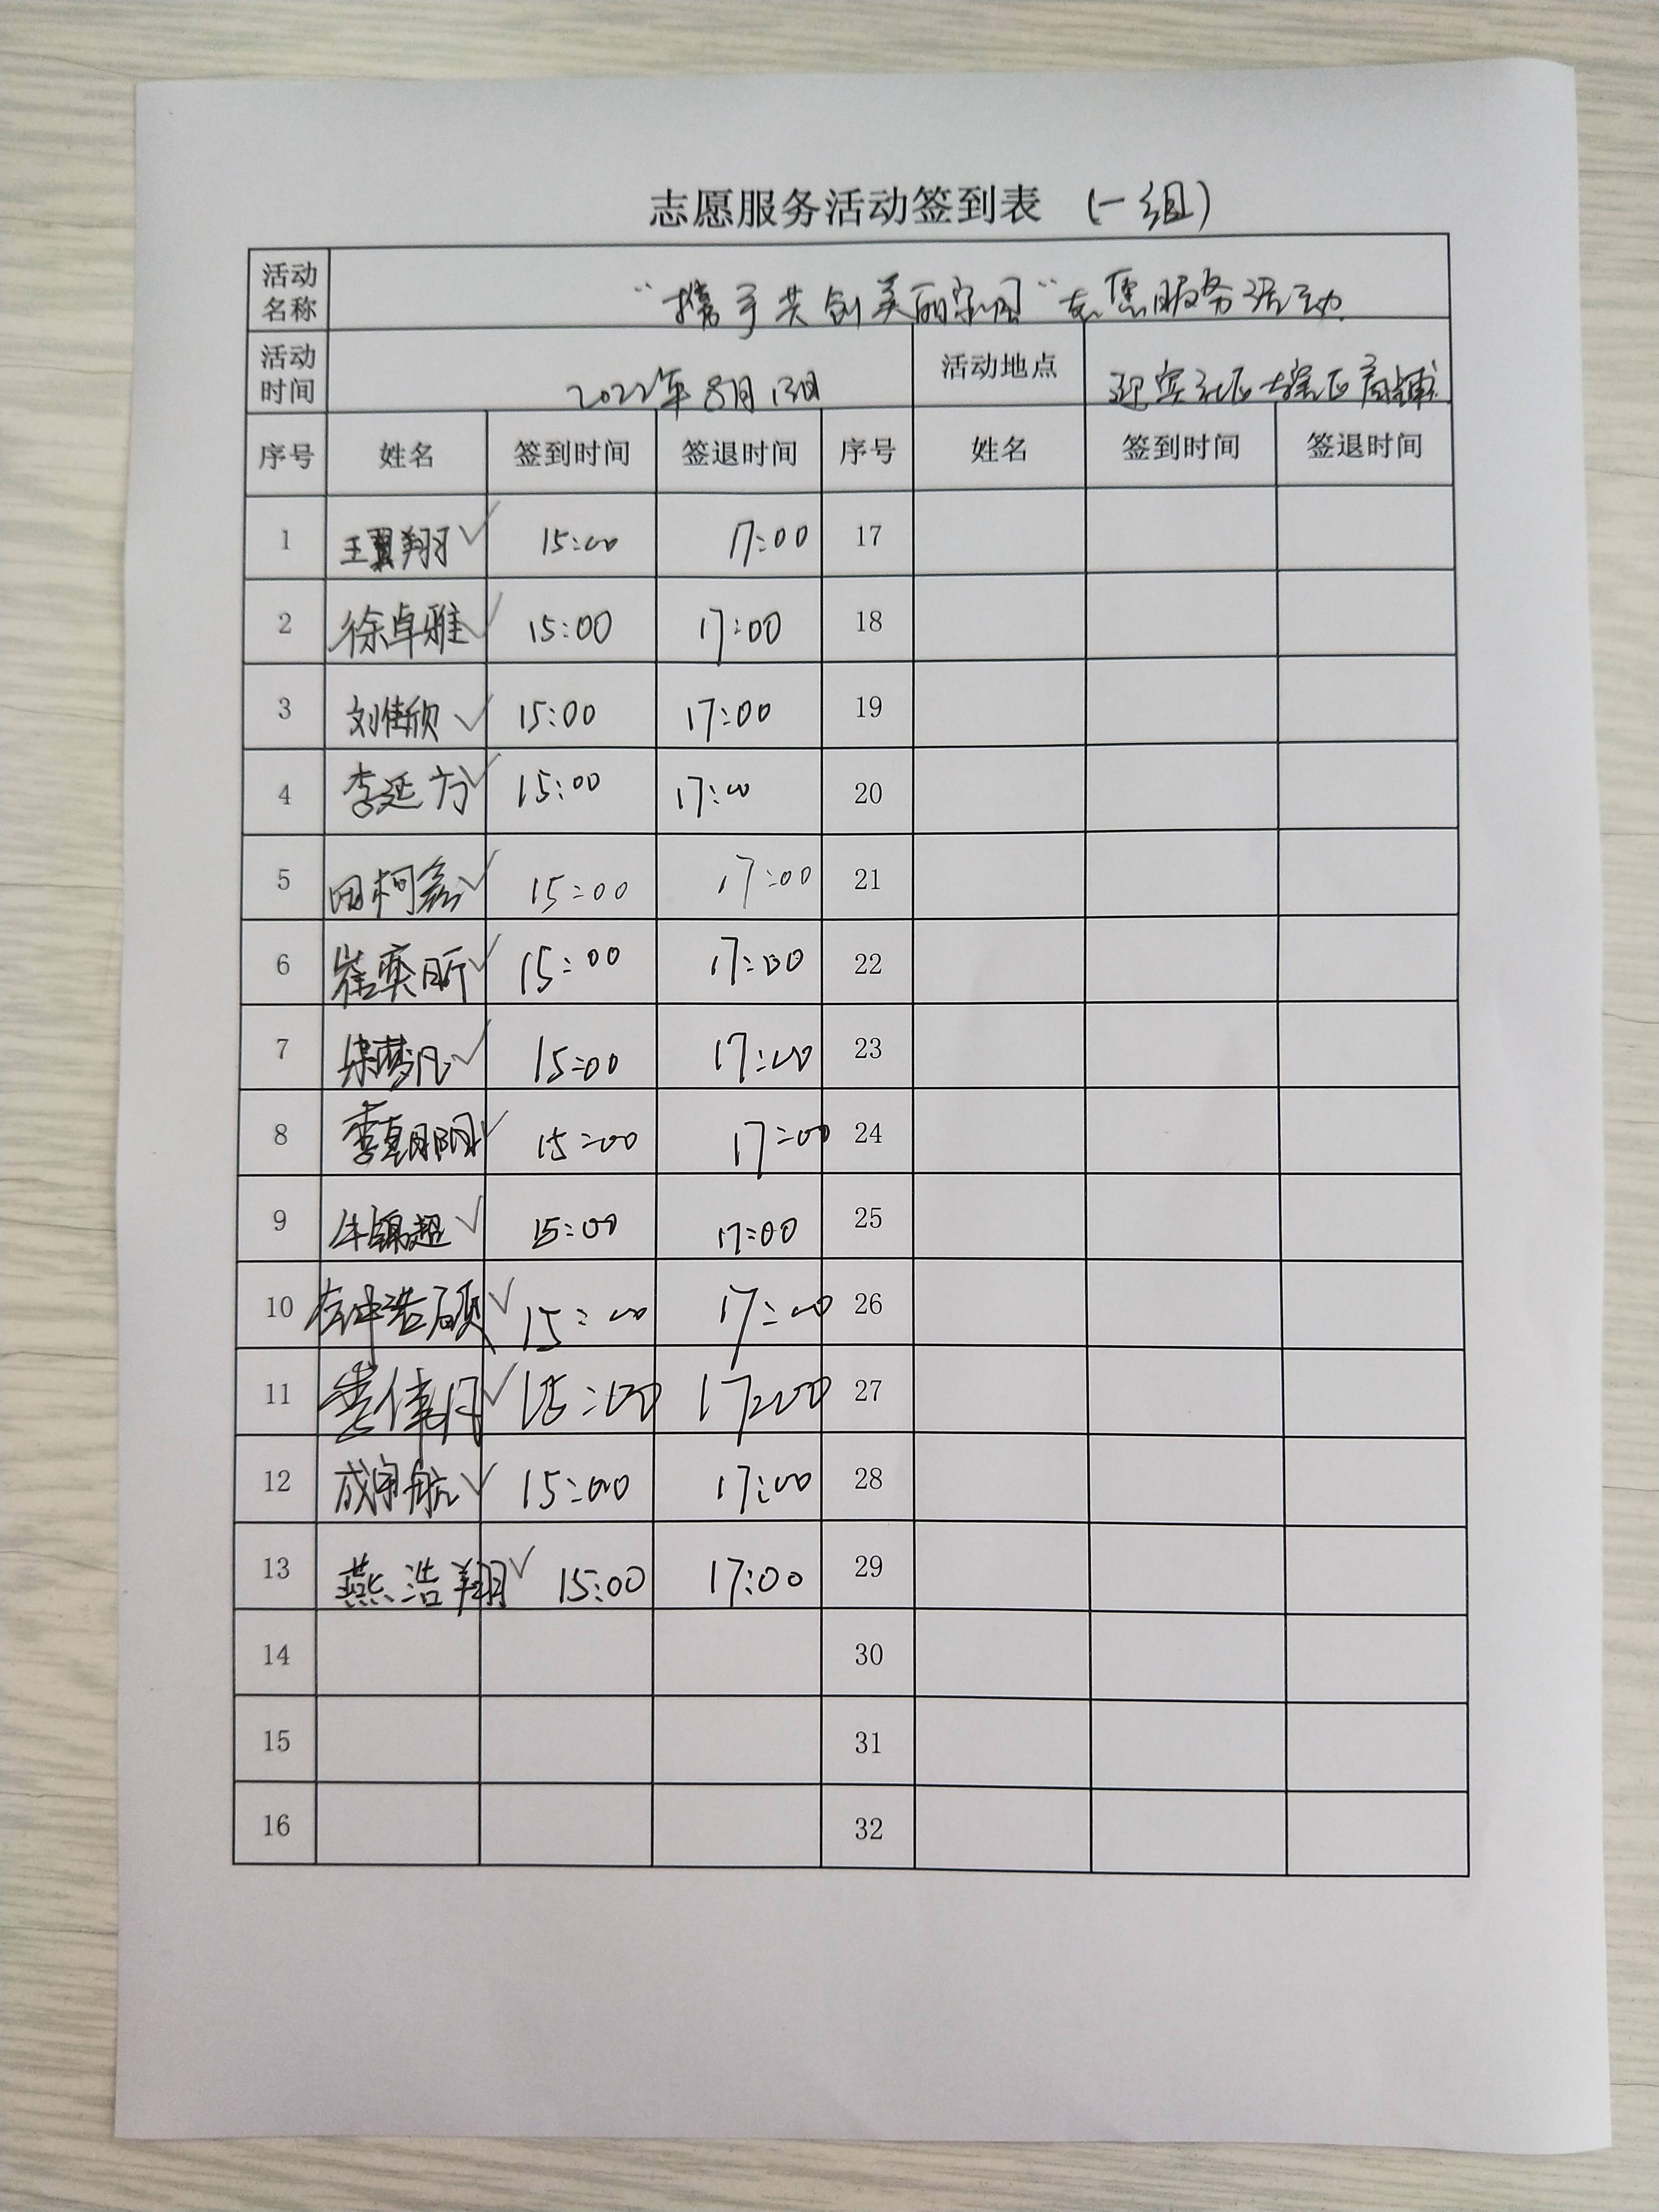 志愿服务活动签到表 (一组)
活动名称 "携手共创美丽家园"志愿服务活动
活动时间 2022年8月13日 活动地点 迎宾社区辖区商铺
序号 姓名 签到时间 签退时间 序号 姓名 签到时间 签退时间
1 王翼翔 ✓ 15:00 17:00 17
2 徐卓雅 ✓ 15:00 17:00 18
3 刘佳欣 ✓ 15:00 17:00 19
4 李延方 ✓ 15:00 17:00 20
5 田柯鑫 ✓ 15:00 17:00 21
6 崔奕昕 ✓ 15:00 17:00 22
7 梁梦凡 ✓ 15:00 17:00 23
8 李朝阳 ✓ 15:00 17:00 24
9 牛锦超 ✓ 15:00 17:00 25
10 ✓ 15:00 17:00 26
11 ✓ 15:00 17:00 27
12 成宇航 ✓ 15:00 17:00 28
13 燕浩翔 ✓ 15:00 17:00 29
14 30
15 31
16 32